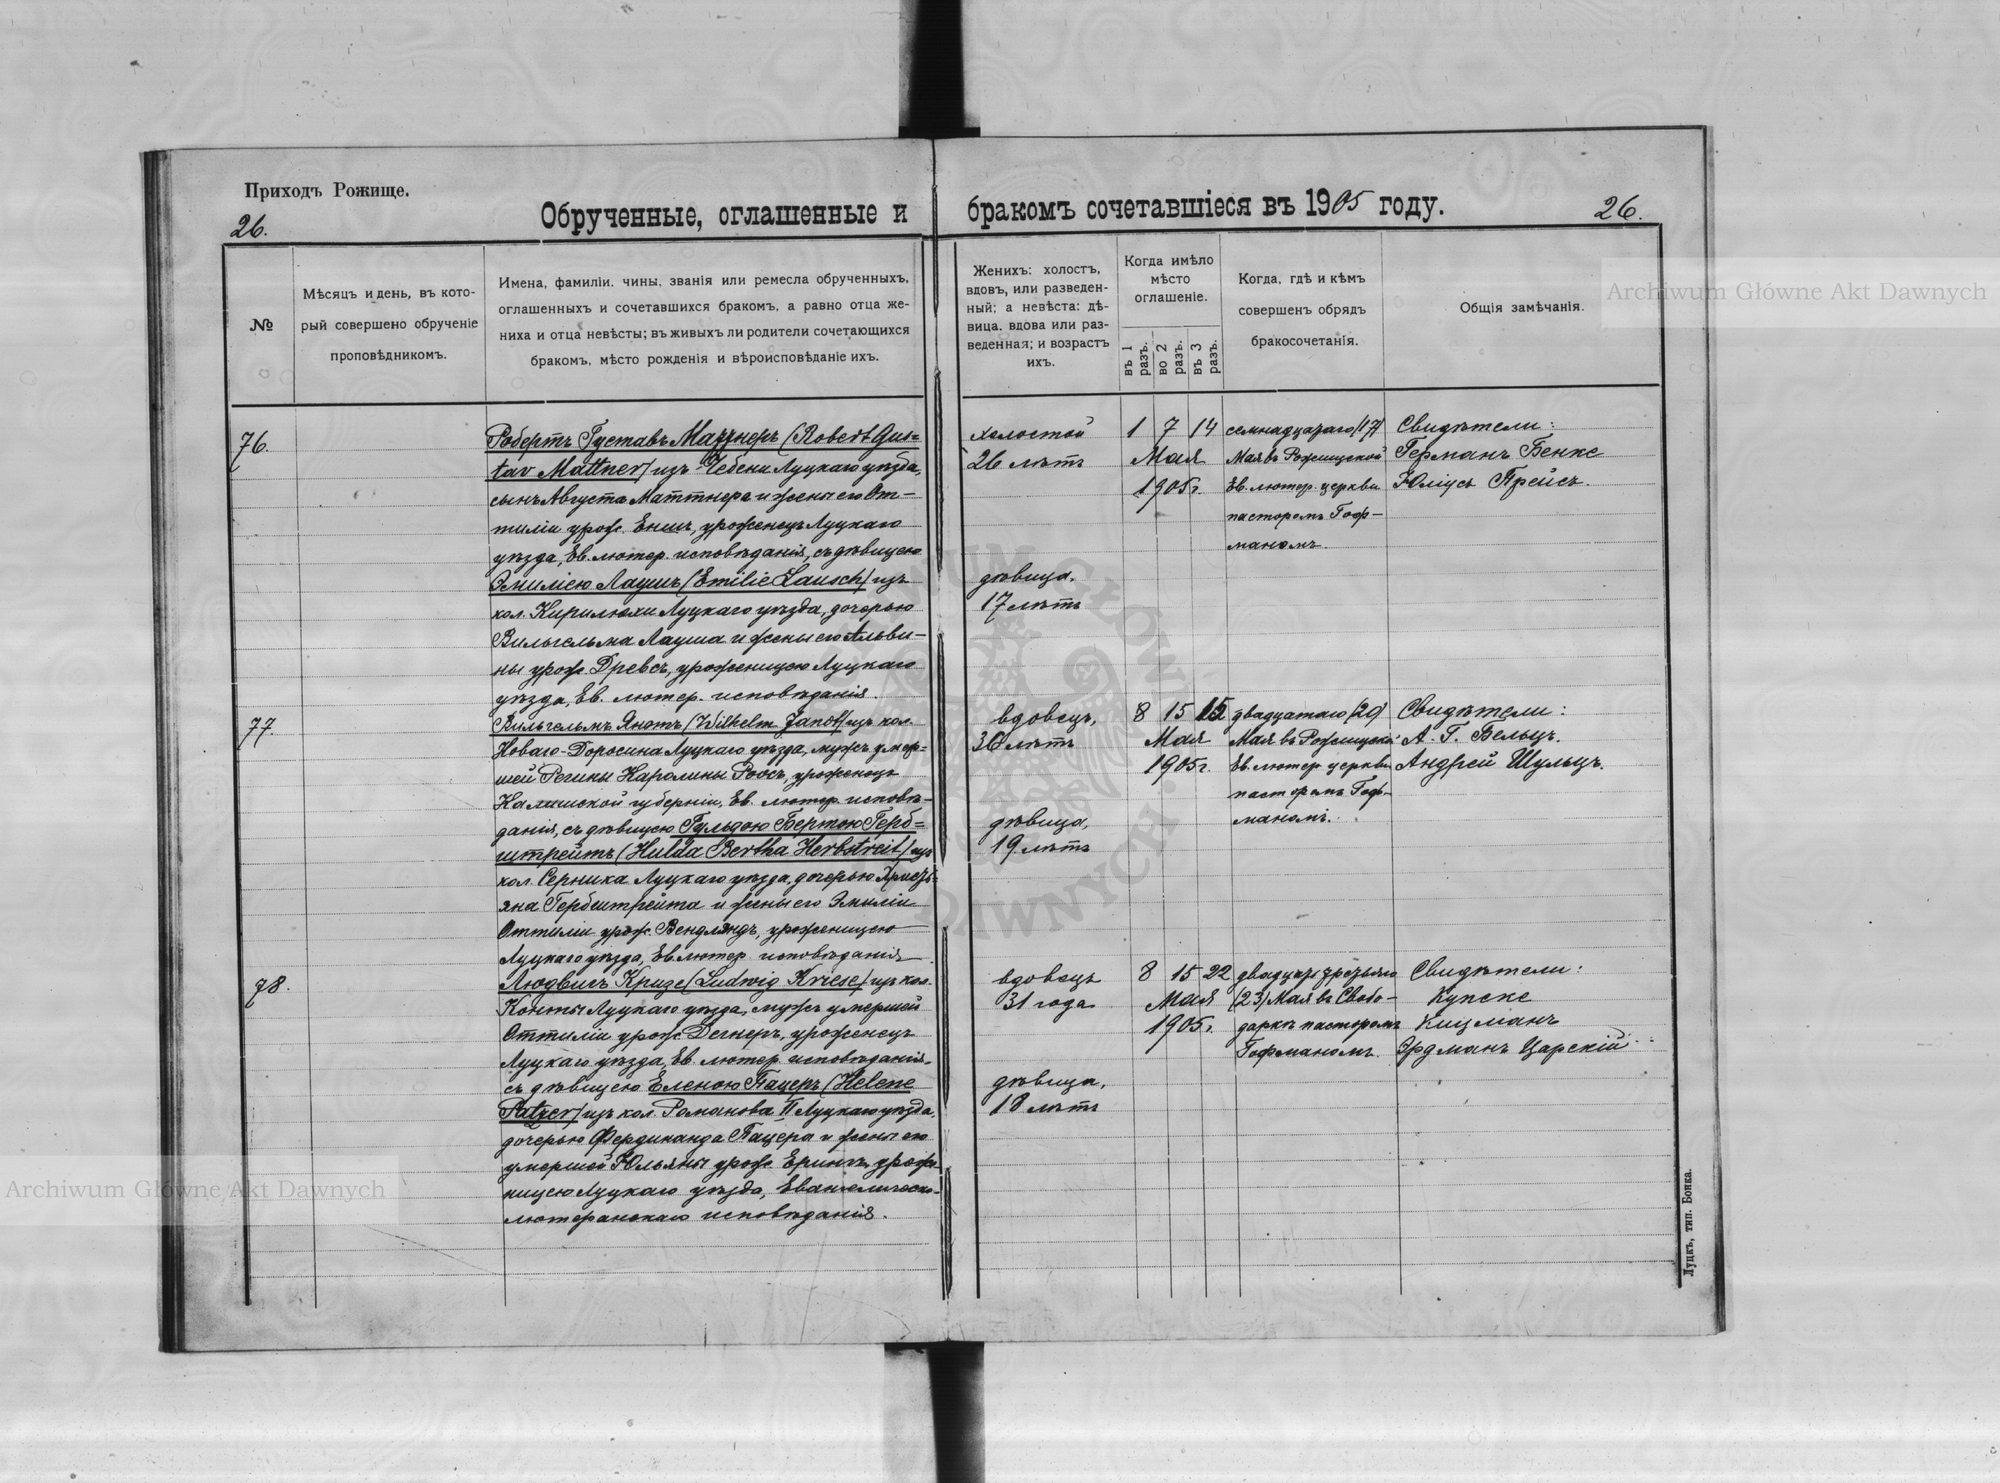 Приходъ Рожище.
26.
Обрученные, оглашенные и
бракомъ сочетавшіеся въ 1905 году.
26.
№
Мѣсяцъ и день, въ кото-
рый совершено обрученіе
проповѣдникомъ.
Имена, фамиліи. чины, званія или ремесла обрученныхъ,
оглашенныхъ и сочетавшихся бракомъ, а равно отца же-
ниха и отца невѣсты; въ живыхъ ли родители сочетающихся
бракомъ, мѣсто рожденія и вѣроисповѣданіе ихъ.
Женихъ: холостъ,
вдовъ, или разведен-
ный; а невѣста: дѣ-
вица, вдова или раз-
веденная; и возрастъ
ихъ.
Когда имѣло
мѣсто
оглашеніе.
въ 1 разъ.
во 2 разъ.
въ 3 разъ.
Когда, гдѣ и кѣмъ
совершенъ обрядъ
бракосочетанія.
Общія замѣчанія.
76.
Робертъ Густавъ Маттнеръ (Robert Gus=
tav Mattner) изъ Чебени Луцкаго уѣзда,
сынъ Августа Маттнера и жены его От-
тиліи урож. Еншъ, уроженецъ Луцкаго
уѣзда, Ев. лютер. исповѣданія, съ дѣвицею
Эмиліею Лаушъ (Emilie Lausch) изъ
кол. Кирилюхи Луцкаго уѣзда, дочерью
Вильгельма Лауша и жены его Альви-
ны урож. Древсъ, уроженицею Луцкаго
уѣзда, Ев. лютер. исповѣданія.
холостой
26 лѣтъ
дѣвица,
17 лѣтъ
1 7 14
Мая
1905 г.
семнадцатаго (17)
Мая въ Рожищской
Ев. лютер. церкви
пасторомъ Гоф-
маномъ.
Свидѣтели:
Германъ Бенке
Юліусъ Прейсъ.
77.
Вильгельмъ Янотъ (Wilhelm Janot) изъ кол.
Новаго-Доросина Луцкаго уѣзда, мужъ умер=
шей Регины Каролины Роосъ, уроженецъ
Калишской губерніи, Ев. лютер. исповѣ-
данія, съ дѣвицею Гульдою Бертою Герб=
штрейтъ (Hulda Bertha Herbstreit) изъ
кол. Серника Луцкаго уѣзда, дочерью Христь=
яна Гербштрейта и жены его Эмиліи
Оттиліи урож. Вендландъ, уроженицею
Луцкаго уѣзда, Ев. лютер. исповѣданія.
вдовецъ,
36 лѣтъ
дѣвица,
19 лѣтъ
8 15
Мая
1905 г.
двадцатаго (20)
Мая въ Рожищской
Ев. лютер. церкви
пасторомъ Гоф-
маномъ.
Свидѣтели:
А. Г. Вельцъ.
Андрей Шульцъ.
78.
Людвигъ Кризе (Ludwig Kriese) изъ кол.
Конты Луцкаго уѣзда, мужъ умершей
Оттиліи урож. Дегнеръ, уроженецъ
Луцкаго уѣзда, Ев. лютер. исповѣданія,
съ дѣвицею Еленою Пацеръ (Helene
Patzer) изъ кол. Романова II Луцкаго уѣзда,
дочерью Фердинанда Пацера и жены его
умершей Юльяны урож. урож-
ницею Луцкаго уѣзда, Евангелическо-
лютеранскаго исповѣданія.
вдовецъ
31 года
дѣвица,
18 лѣтъ
8 15 22
Мая
1905 г.
двадцать третьяго
(23) Мая въ Свобо-
даркѣ пасторомъ
Гофманомъ.
Свидѣтели:
Купске
Кицманъ
Эрдманъ Царскій
Луцкъ, тип. Бонка.
Archiwum Główne Akt Dawnych
Archiwum Główne Akt Dawnych